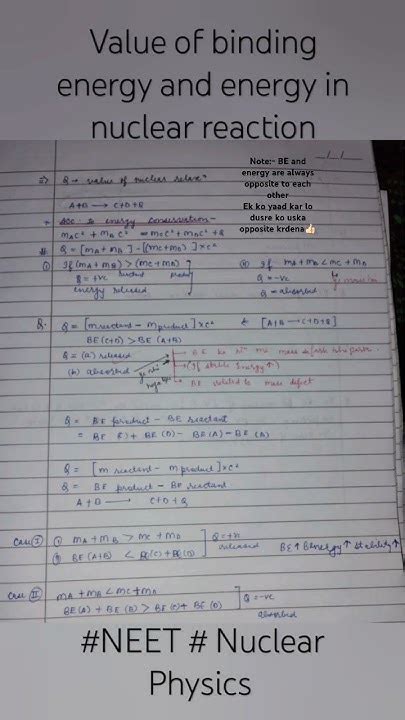 Value of binding
energy and energy in
nuclear reaction
Note:- BE and
energy are always
opposite to each
other
Ek ko yaad kar lo
dusre ko uska
opposite krdena👍🏻
Q → value of nuclear
A+B → C+D+Q
Acc. to energy conservation-
mAc² + mBc² = mcc² + mDc² + Q
Q = [mA+mB] - [(mc+mD)] × c²
① If (mA+mB) > (mc+mD)
Q = +ve
energy released
② If mA+mB < mc+mD
Q = -ve
Q = absorbed
Q. Q = [mreactant - mproduct] × c² [A+B → C+D+Q]
BE(C+D) > BE(A+B)
Q = (a) released
(b) absorbed
(If stable Energy ↑)
BE related to mass defect
Q = BE product - BE reactant
Q = [m reactant - m product] × c²
Q = BE product - BE reactant
A+B → C+D+Q
Case Ⓘ ① mA + mB > mc + mD
Q = +ve
released
② BE(A+B) < BE(C) + BE(D)
BE↑ Benergy↑ stability↑
Case Ⅱ mA+mB < mc+mD
BE(A) + BE(B) > BE(C) + BE(D)
Q = -ve
absorbed
#NEET # Nuclear
Physics